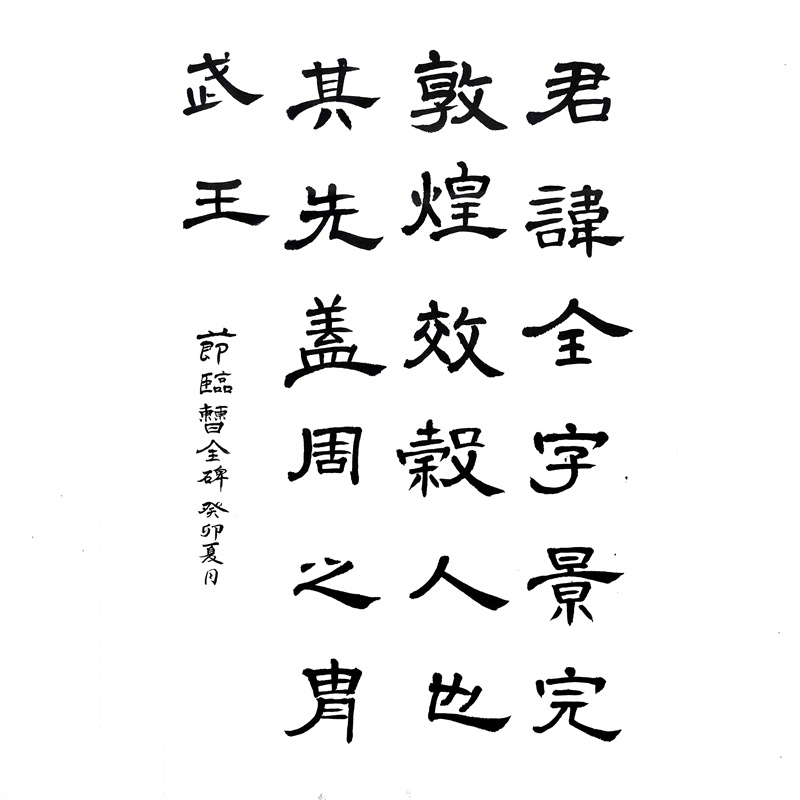 君諱全字景完
敦煌效穀人也
其先盖周之胄
武王
節臨曹全碑 癸卯夏月